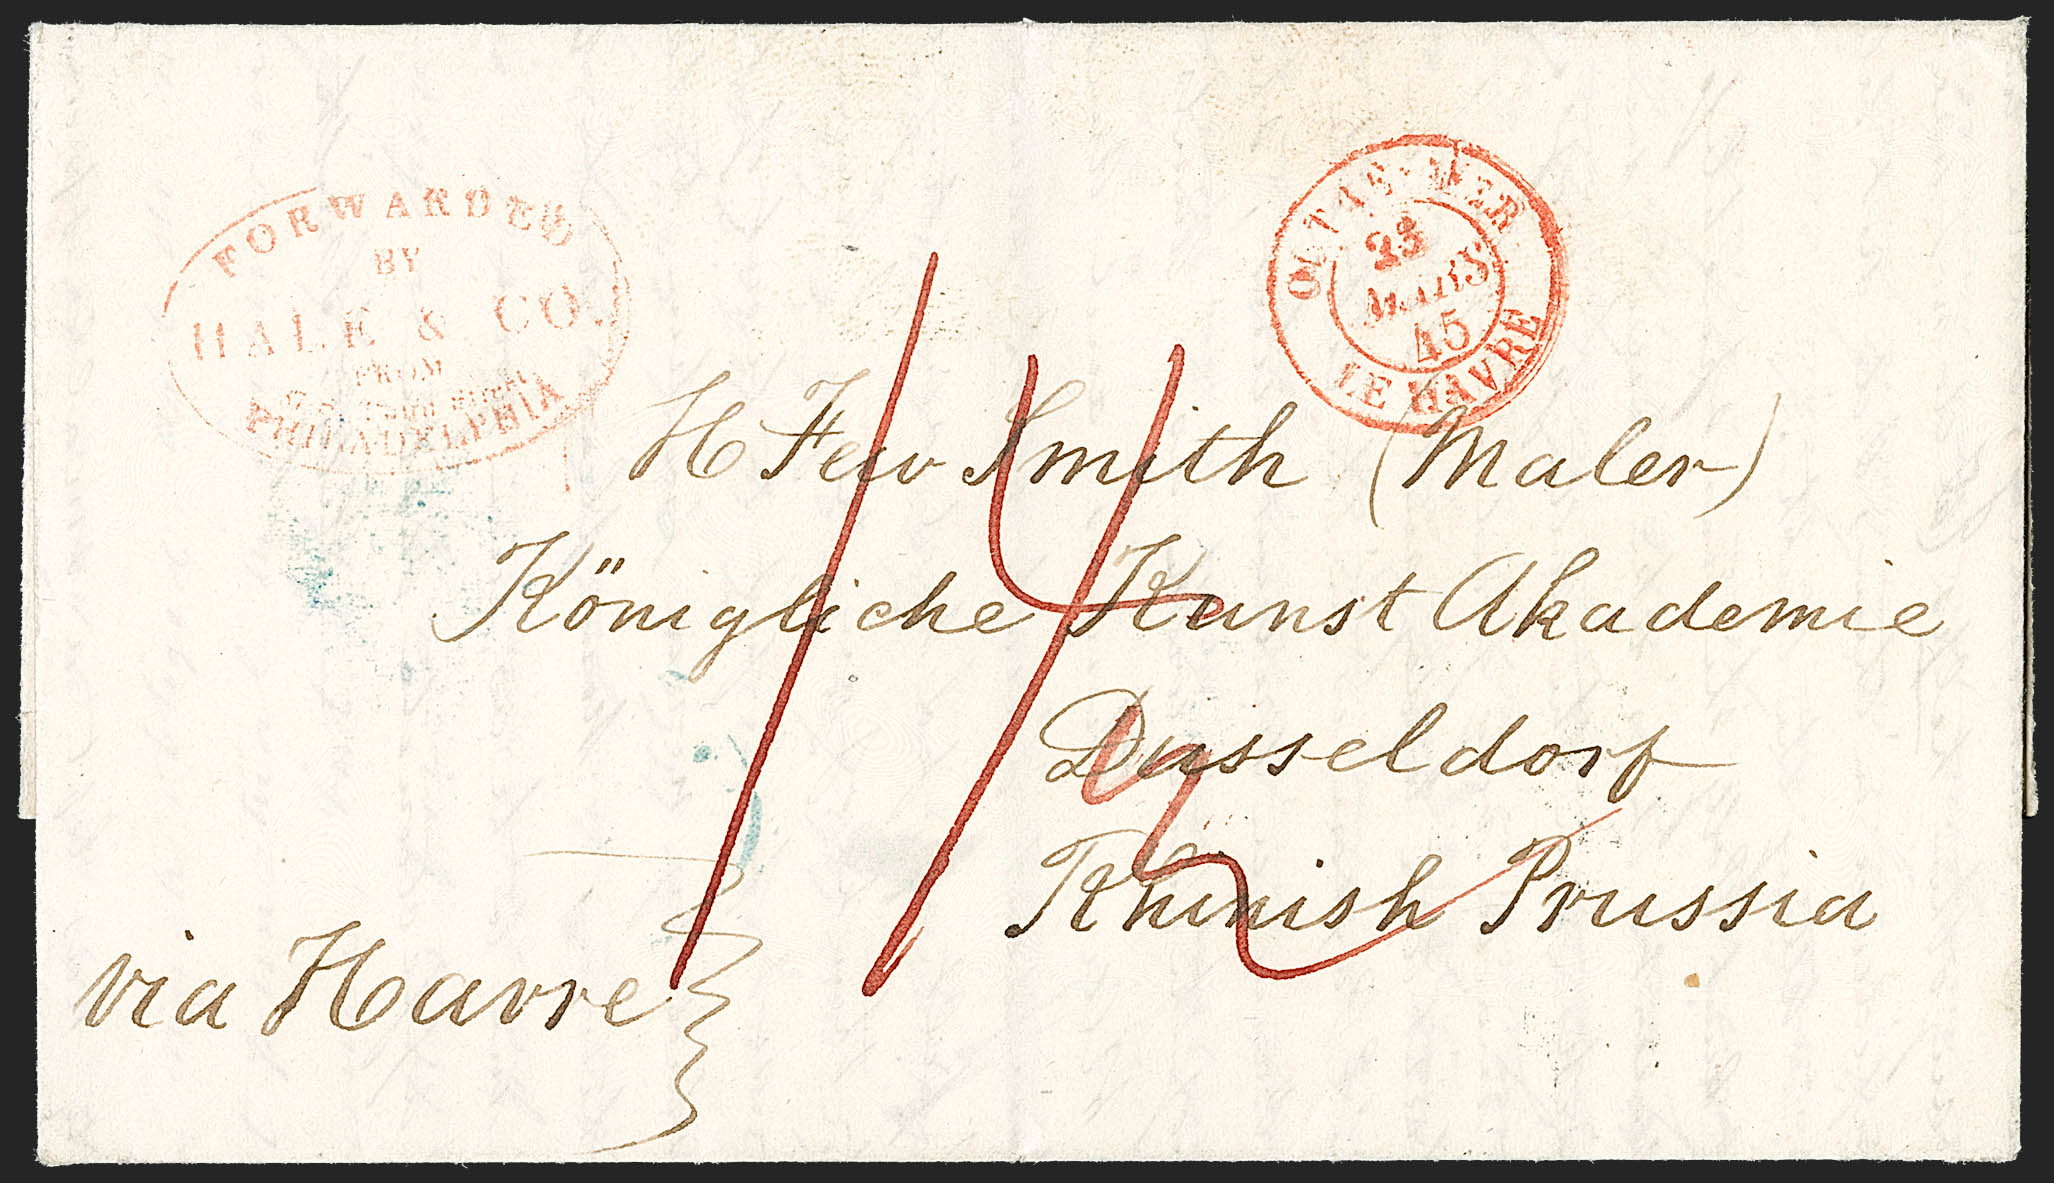 FORWARDED
BY
HALE & CO.
FROM
PHILADELPHIA
OUTRE-MER
23
MARS
45
LE HAVRE
H Few Smith (Maler)
Königliche Kunst Akademie
Dusseldorf
Rhinish Prussia
via Havre
14